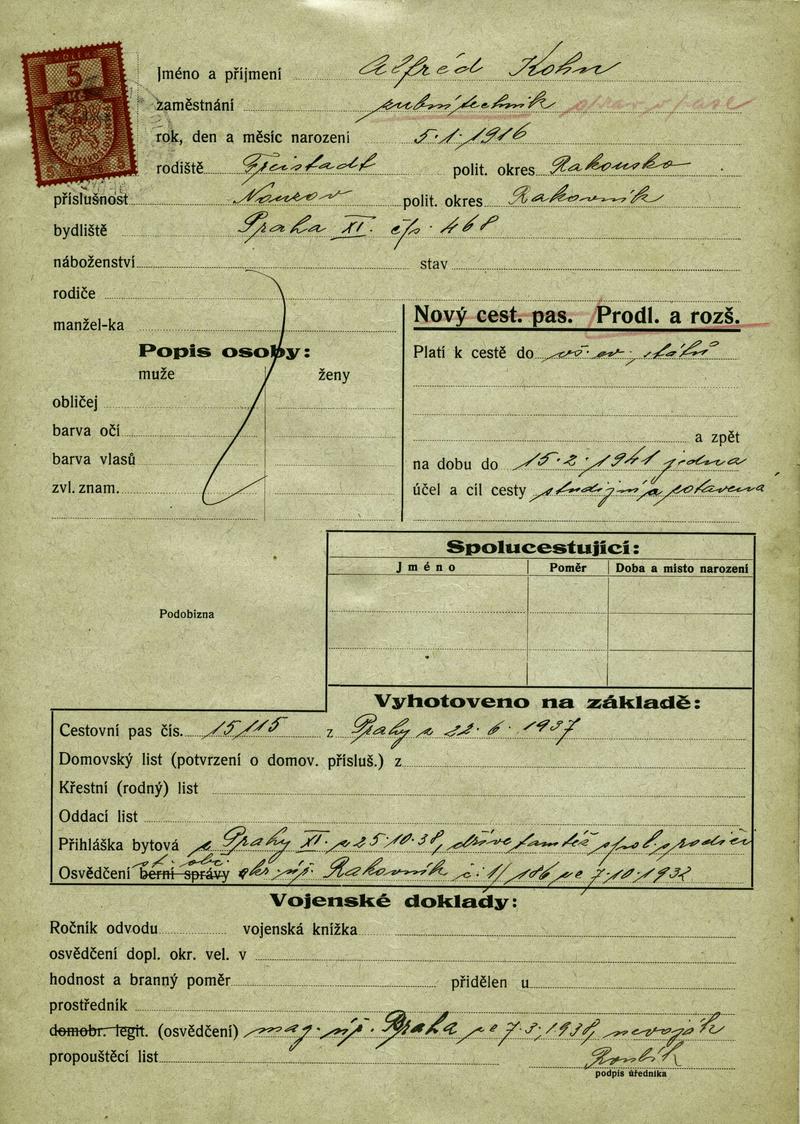 KOLEK
5
Kč
Jméno a příjmení Alfréd Kohn
zaměstnání zubní technik oprav. v pase
rok, den a měsíc narození 5.1.1916
rodiště Freistadt polit. okres Rakousko
příslušnost polit. okres Rakovník
bydliště Praha XI. čp. 468
náboženství stav
rodiče
manžel-ka
Nový cest. pas. Prodl. a rozš.
Popis osoby:
muže ženy
obličej
barva očí
barva vlasů
zvl. znam.
Platí k cestě do vš. ev. států
a zpět
na dobu do 15.2.1941 jedna
účel a cíl cesty studijní a
Spolucestující:
Jméno Poměr Doba a místo narození
Podobizna
Vyhotoveno na základě:
Cestovní pas čís. 15115 z Prahy z 22.6.1937
Domovský list (potvrzení o domov. přísluš.) z
Křestní (rodný) list
Oddací list
Přihláška bytová z Prahy XI. z 25.10.38, dříve tamtéž spol. s rodiči
st. obč.
Osvědčení berní správy okr. úř. Rakovník č. 1/186 ze 7.10.1932
Vojenské doklady:
Ročník odvodu vojenská knížka
osvědčení dopl. okr. vel. v
hodnost a branný poměr přidělen u
prostředník
domobr. legit. (osvědčení) mag. úř. Praha ze 7.3.1938, nevoják
propouštěcí list
podpis úředníka